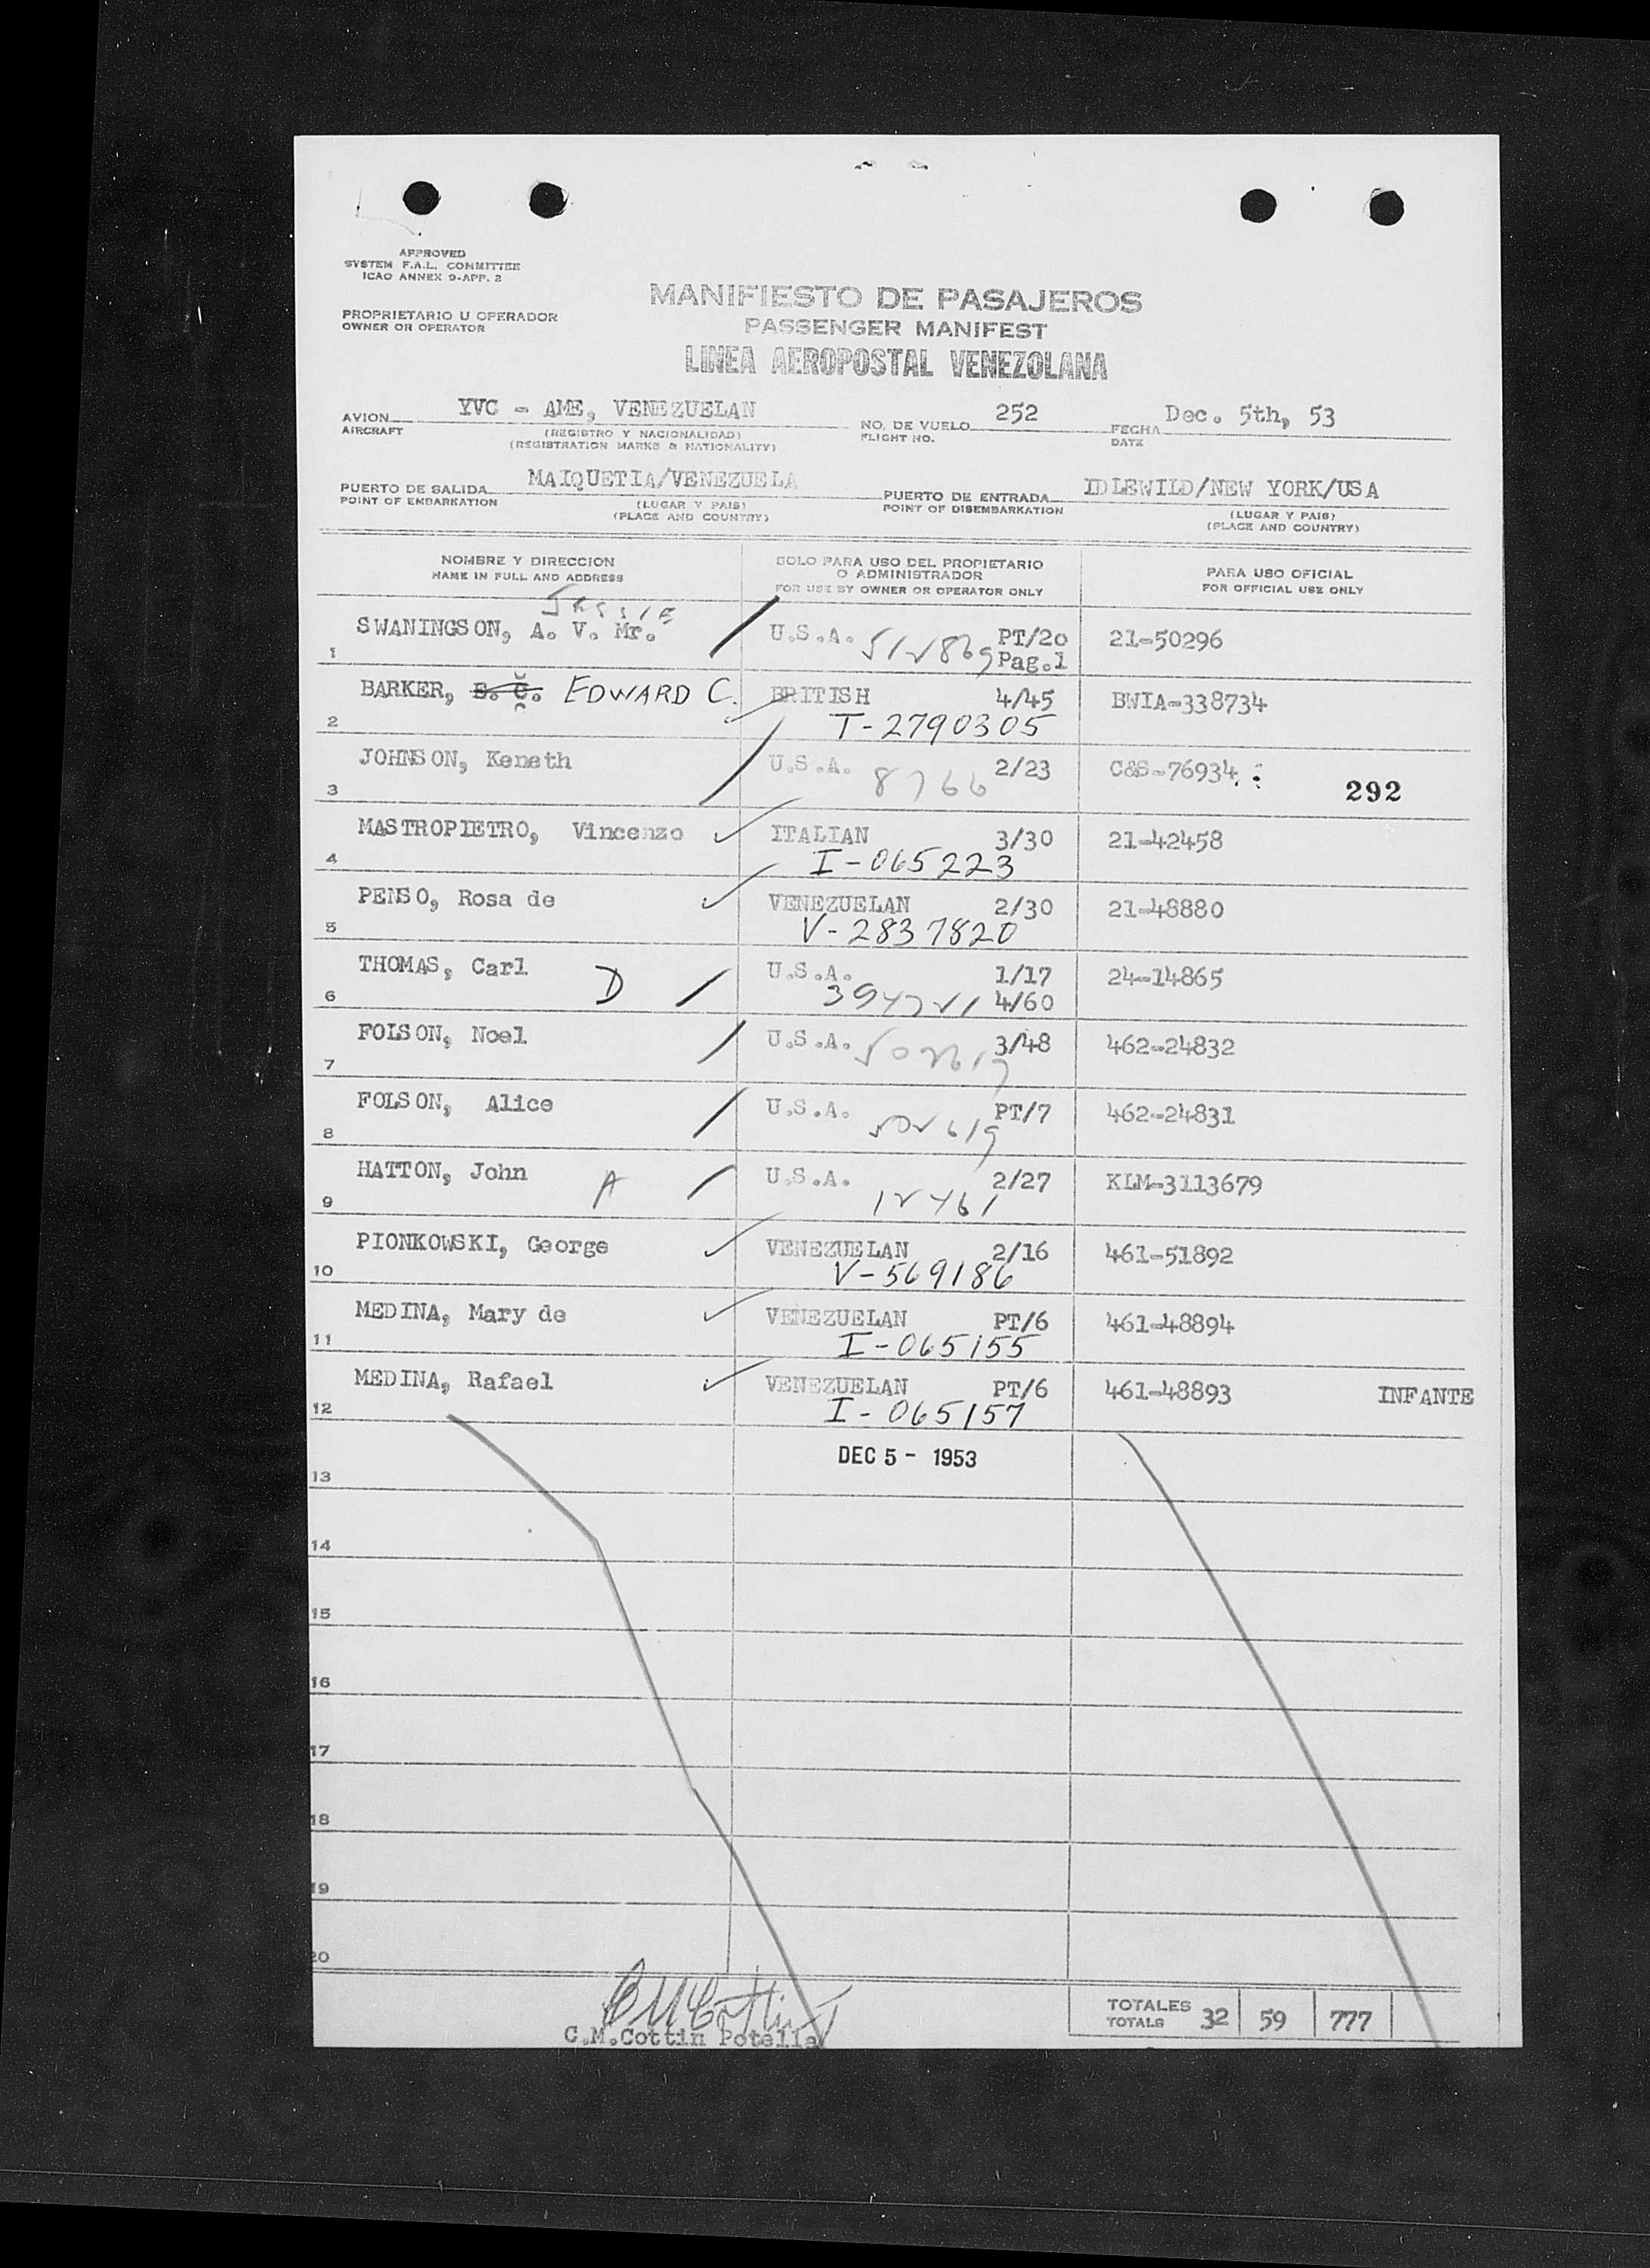 APPROVED
SYSTEM F.A.L. COMMITTEE
ICAO ANNEX 9-APP. 2
PROPRIETARIO U OPERADOR
OWNER OR OPERATOR
MANIFIESTO DE PASAJEROS
PASSENGER MANIFEST
LINEA AEROPOSTAL VENEZOLANA
AVION YVC - AME, VENEZUELAN NO. DE VUELO 252 FECHA Dec. 5th, 53
AIRCRAFT (REGISTRO Y NACIONALIDAD) FLIGHT NO. DATE
(REGISTRATION MARKS & NATIONALITY)
PUERTO DE SALIDA MAIQUETIA/VENEZUELA PUERTO DE ENTRADA IDLEWILD/NEW YORK/USA
POINT OF EMBARKATION (LUGAR Y PAIS) POINT OF DISEMBARKATION (LUGAR Y PAIS)
(PLACE AND COUNTRY) (PLACE AND COUNTRY)
NOMBRE Y DIRECCION SOLO PARA USO DEL PROPIETARIO PARA USO OFICIAL
NAME IN FULL AND ADDRESS O ADMINISTRADOR FOR OFFICIAL USE ONLY
FOR USE BY OWNER OR OPERATOR ONLY
JESSIE
SWANINGSON, A. V. Mr. U.S.A. 512869 PT/20 21-50296
1 Pag.1
BARKER, E. C. EDWARD C. BRITISH 4/45 BWIA-338734
2 T-2790305
JOHNSON, Keneth U.S.A. 2/23 C&S-76934
3 8766 292
MASTROPIETRO, Vincenzo ITALIAN 3/30 21-42458
4 I-065223
PENSO, Rosa de VENEZUELAN 2/30 21-48880
5 V-2837820
THOMAS, Carl D U.S.A. 1/17 24-14865
6 4/60
FOLSON, Noel U.S.A. 3/48 462-24832
7
FOLSON, Alice U.S.A. PT/7 462-24831
8 502619
HATTON, John A U.S.A. 2/27 KLM-3113679
9 12461
PIONKOWSKI, George VENEZUELAN 2/16 461-51892
10 V-569186
MEDINA, Mary de VENEZUELAN PT/6 461-48894
11 I-065155
MEDINA, Rafael VENEZUELAN PT/6 461-48893 INFANTE
12 I-065157
DEC 5 - 1953
13
14
15
16
17
18
19
20
TOTALES 32 59 777
TOTALS
C.M.Cottin Potella